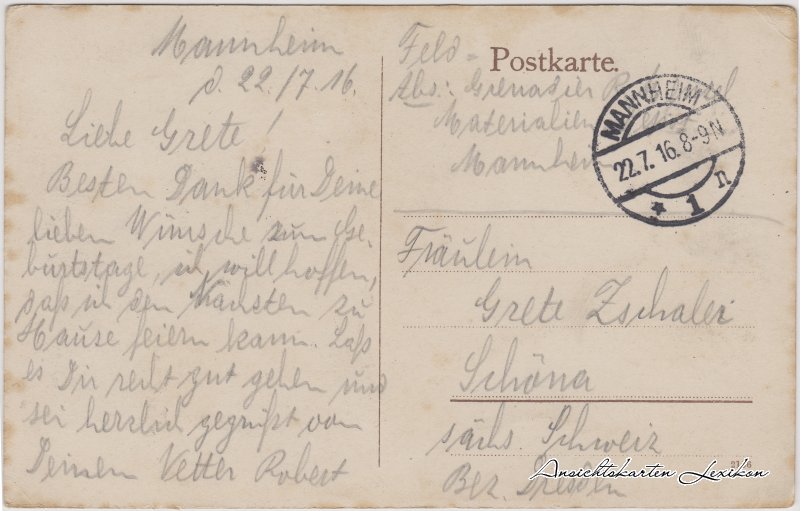 Mannheim
d. 22./7.16.
Liebe Grete!
Besten Dank für Deine
lieben Wünsche zum Ge-
burtstage, ich will hoffen,
daß ich den Nächsten zu
Hause feiern kann. Laß
es Dir recht gut gehen und
sei herzlich gegrüßt von
Deinem Vetter Robert
Feld- Postkarte.
Abs.: Grenadier
Materialien
Mannheim
MANNHEIM
22.7.16.8-9N
* 1 n
Fräulein
Grete Zschaler
Schöna
sächs. Schweiz
Bez. Dresden
Ansichtskarten Lexikon